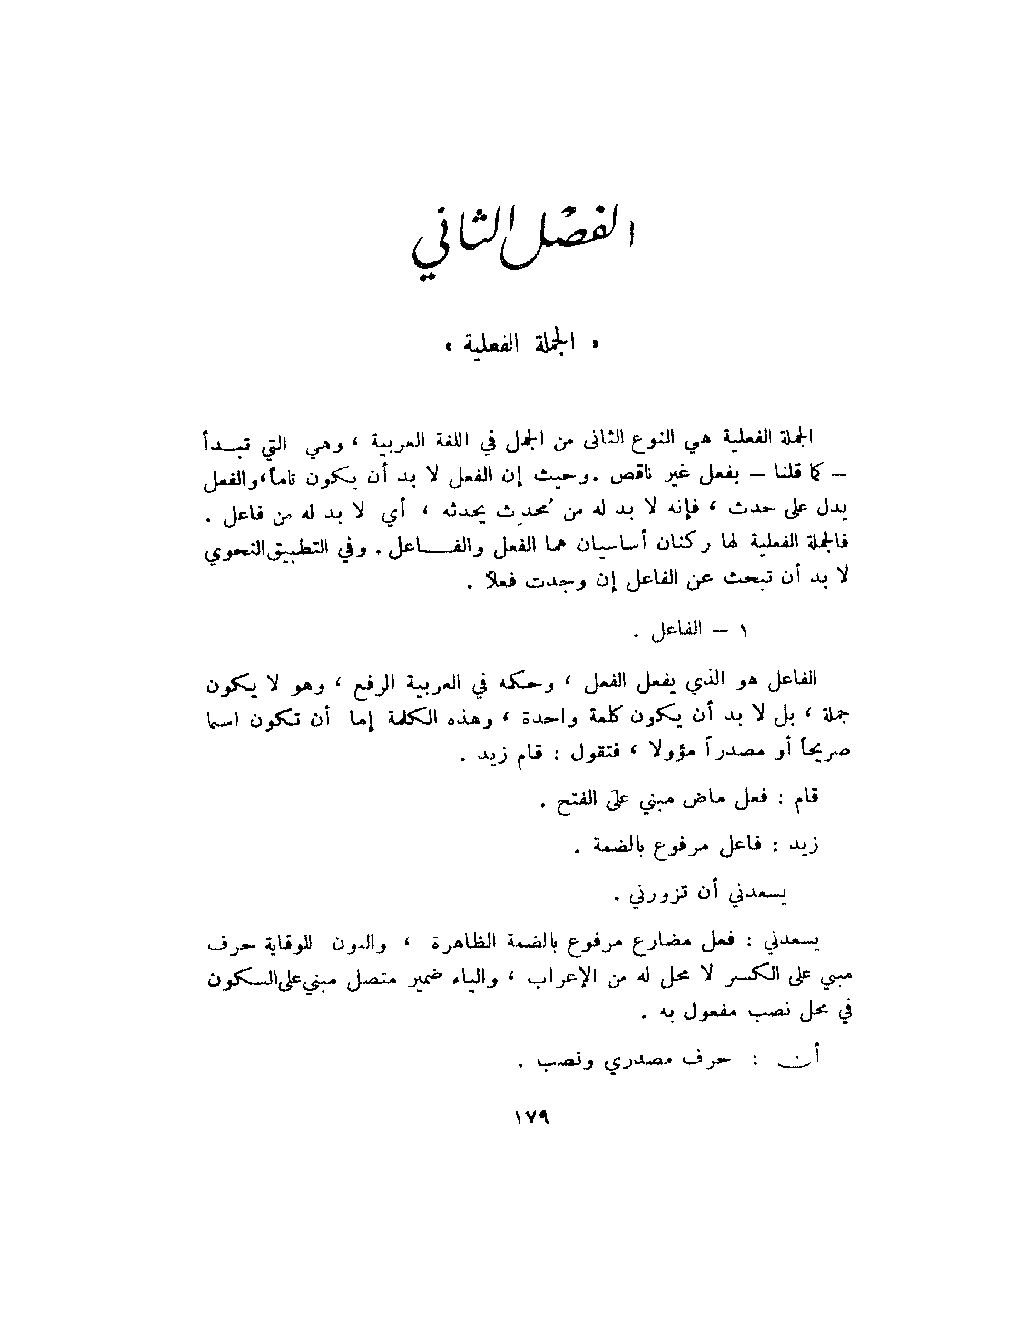 الفصل الثاني
« الجملة الفعلية »
الجملة الفعلية هي النوع الثاني من الجمل في اللغة العربية ، وهي التي تبـــدأ
– كما قلنا – بفعل غير ناقص . وحيث إن الفعل لا بد أن يكون تاماً ، والفعل
يدل على حدث ، فإنه لا بد له من مُحدِث يحدثه ، أي لا بد له من فاعل .
فالجملة الفعلية لها ركنان أساسيان هما الفعل والفـــاعل . وفي التطبيق النحوي
لا بد أن تبحث عن الفاعل إن وجدت فعلاً .
١ – الفاعل .
الفاعل هو الذي يفعل الفعل ، وحكمه في العربية الرفع ، وهو لا يكون
جملة ، بل لا بد أن يكون كلمة واحدة ، وهذه الكلمة إما أن تكون اسما
صريحاً أو مصدراً مؤولا ، فتقول : قام زيد .
قام : فعل ماض مبني على الفتح .
زيد : فاعل مرفوع بالضمة .
يسعدني أن تزورني .
يسعدني : فعل مضارع مرفوع بالضمة الظاهرة ، والنون للوقاية حرف
مبني على الكسر لا محل له من الإعراب ، والياء ضمير متصل مبني على السكون
في محل نصب مفعول به .
أن : حرف مصدري ونصب .
١٧٩